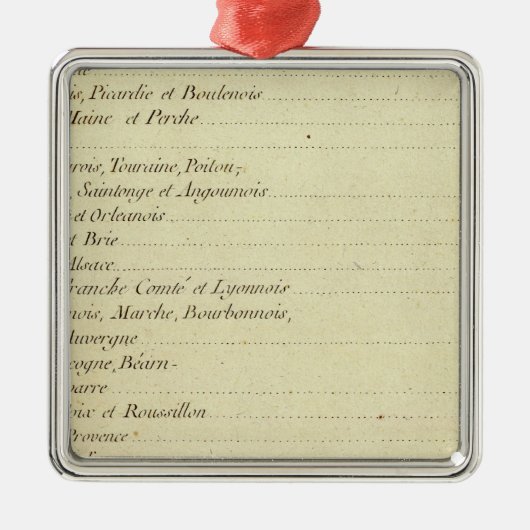 is, Picardie et Boulenois
Maine et Perche
urois, Touraine, Poitou,
, Saintonge et Angoumois
et Orleanois
et Brie
Alsace
ranche Comté et Lyonnois
nois, Marche, Bourbonnois,
Auvergne
cogne, Béarn
varre
oix et Roussillon
Provence